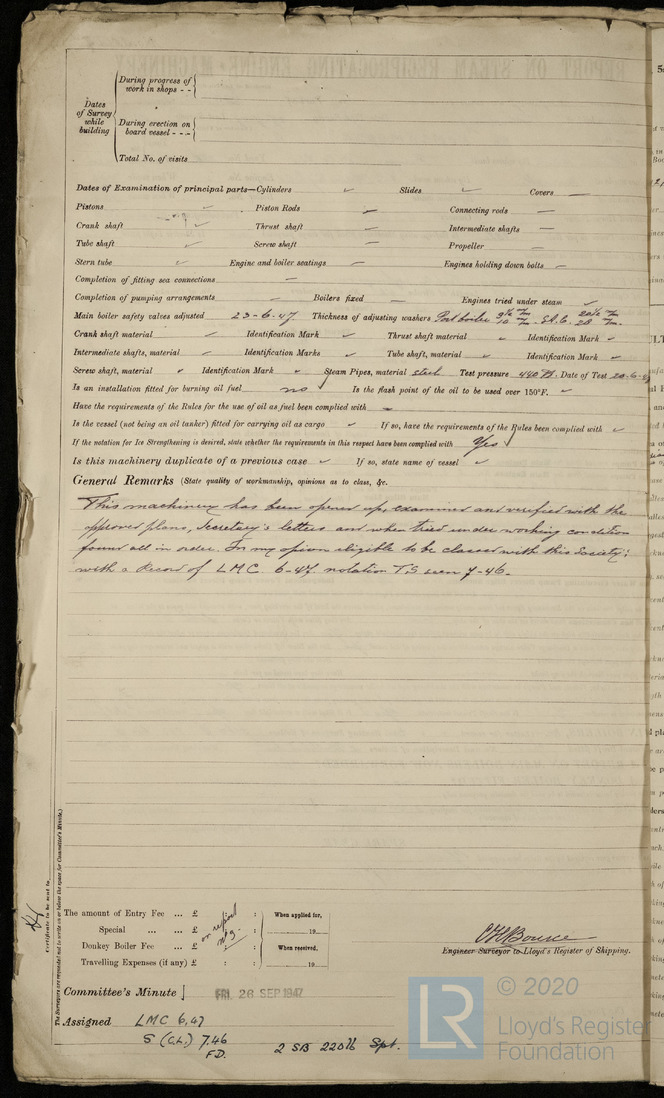 During progress of
work in shops - -
Dates
of Survey
while
building
During erection on
board vessel - - -
Total No. of visits
Dates of Examination of principal parts—Cylinders ✓ Slides ✓ Covers —
Pistons ✓ Piston Rods — Connecting rods —
Crank shaft ✓ Thrust shaft — Intermediate shafts —
Tube shaft ✓ Screw shaft — Propeller —
Stern tube ✓ Engine and boiler seatings — Engines holding down bolts —
Completion of fitting sea connections —
Completion of pumping arrangements — Boilers fixed — Engines tried under steam ✓
Main boiler safety valves adjusted 23-6-47 Thickness of adjusting washers Port boiler
Crank shaft material ✓ Identification Mark ✓ Thrust shaft material ✓ Identification Mark ✓
Intermediate shafts, material ✓ Identification Marks ✓ Tube shaft, material ✓ Identification Mark ✓
Screw shaft, material ✓ Identification Mark ✓ Steam Pipes, material steel Test pressure 440 Date of Test 20-6-47
Is an installation fitted for burning oil fuel no ✓ Is the flash point of the oil to be used over 150°F. ✓
Have the requirements of the Rules for the use of oil as fuel been complied with —
Is the vessel (not being an oil tanker) fitted for carrying oil as cargo ✓ If so, have the requirements of the Rules been complied with ✓
If the notation for Ice Strengthening is desired, state whether the requirements in this respect have been complied with Yes ✓
Is this machinery duplicate of a previous case ✓ If so, state name of vessel ✓
General Remarks (State quality of workmanship, opinions as to class, &c.
This machinery has been opened up, examined and verified with the
approved plans, Secretary's letters and when tried under working condition
found all in order. In my opinion eligible to be classed with this Society;
with a Record of LMC 6-47 notation T.S seen 7-46.
The Surveyors are requested not to write on or below the space for Committee's Minute.)
Certificate to be sent to
The amount of Entry Fee ... £ : :
Special ... ... £
Donkey Boiler Fee ... £
Travelling Expenses (if any) £ : :
on report
When applied for,
19
When received,
19
Engineer Surveyor to Lloyd's Register of Shipping.
Committee's Minute
FRI. 26 SEP 1947
Assigned LMC 6,47
S (C.L.) 7.46
F.D.
2 SB 220 lb Spt.
LR
© 2020
Lloyd's Register
Foundation